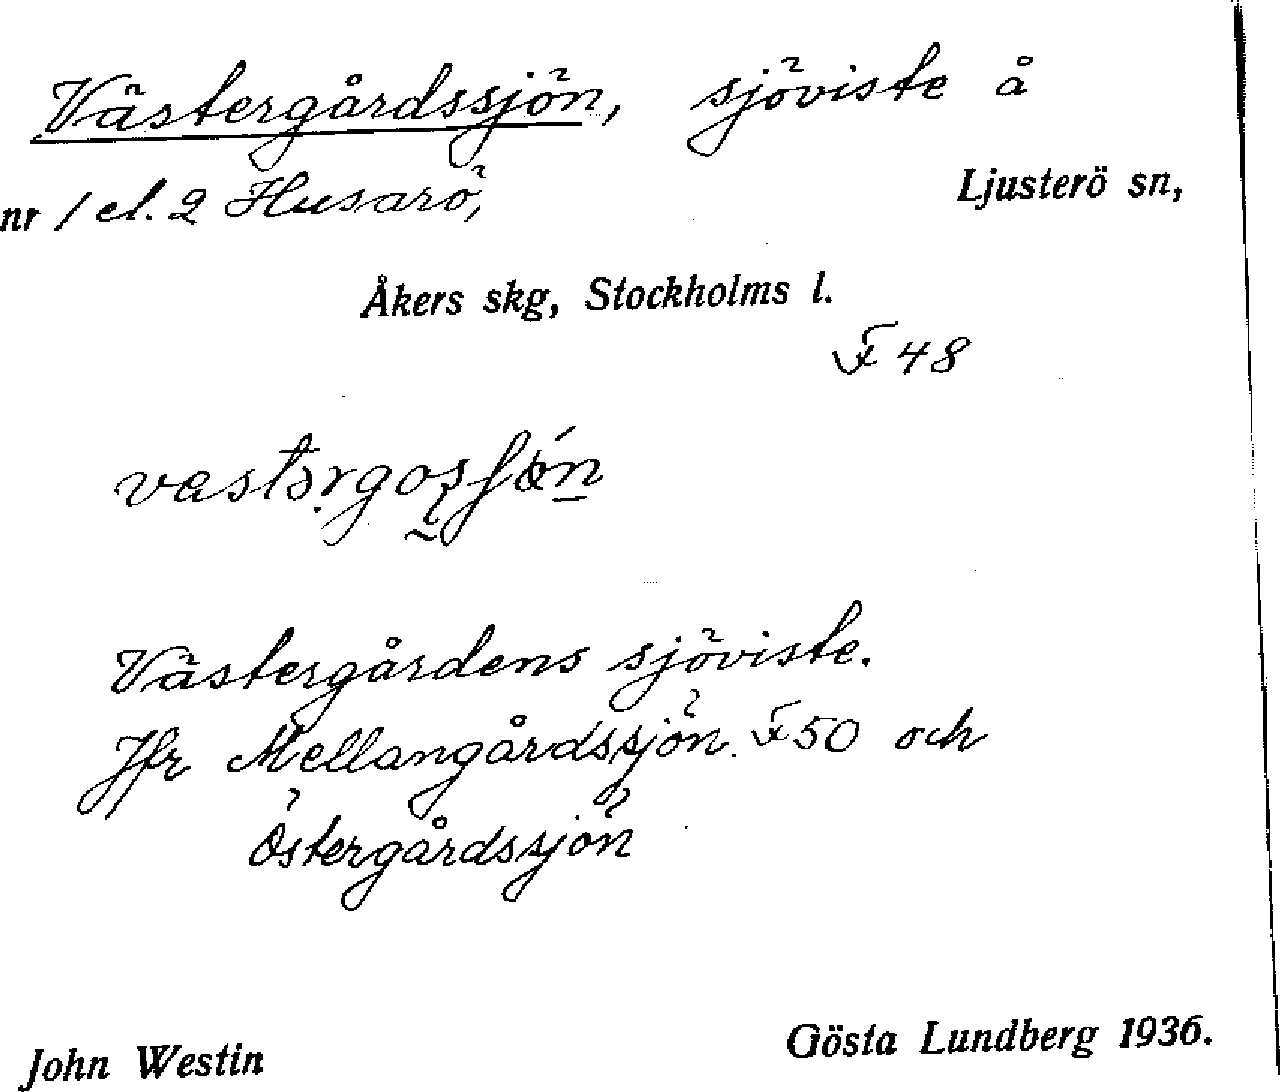 Västergårdssjön, sjöviste å
nr 1 el. 2 Husarö, Ljusterö sn,
Åkers skg, Stockholms l.
F 48
Västergårdens sjöviste.
Jfr Mellangårdssjön. F 50 och
Östergårdssjön
John Westin Gösta Lundberg 1936.